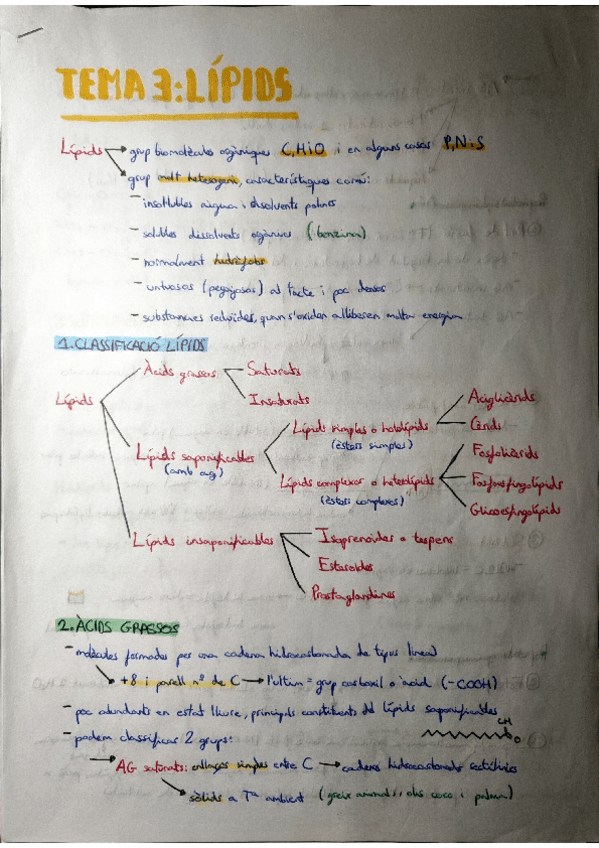 TEMA 3: LÍPIDS
Lípids → grup biomolècules orgàniques C,H i O i en alguns casos P,N i S
grup molt heterogeni, característiques comú:
- insolubles aigua i dissolvents polars
- solubles dissolvents orgànics (benzina)
- normalment hidròfobs
- untuoses (pegajosas) al tacte i poc denses
- substàncies reduïdes, quan s'oxiden alliberen molta energia
1. CLASSIFICACIÓ LÍPIDS
Àcids grassos
Saturats
Insaturats
Lípids
Lípids saponificables
(amb a.g)
Lípids simples o hololípids
(èsters simples)
Acilglicèrids
Cèrids
Lípids complexos o heterolípids
(èsters complexes)
Fosfolípids
Fosfoesfingolípids
Glicoesfingolípids
Lípids insaponificables
Isoprenoides o terpens
Esteroides
Prostaglandines
2. ÀCIDS GRASSOS
- molècules formades per una cadena hidrocarbonada de tipus lineal
+8 i parell nº de C → l'últim = grup carboxil o àcid (-COOH)
- poc abundants en estat lliure, principals constituents de lípids saponificables
- podem classificar 2 grups:
OH
O
→ AG saturats: enllaços simples entre C → cadenes hidrocarbonades rectilínies
sòlids a Tª ambient (greix animal i olis coco i palma)